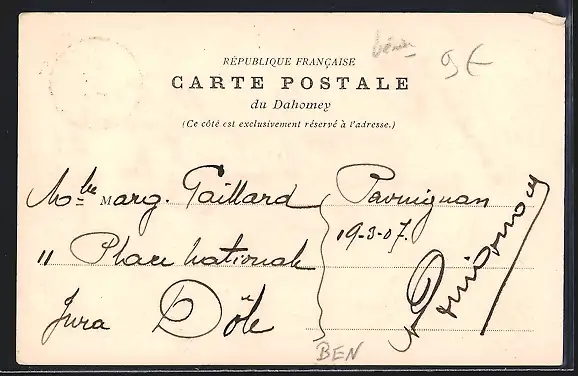 Bénin
9€
RÉPUBLIQUE FRANÇAISE
CARTE POSTALE
du Dahomey
(Ce côté est exclusivement réservé à l'adresse.)
Marg. Gaillard
11 Place Nationale
Jura Dôle
19-3-07.
BEN